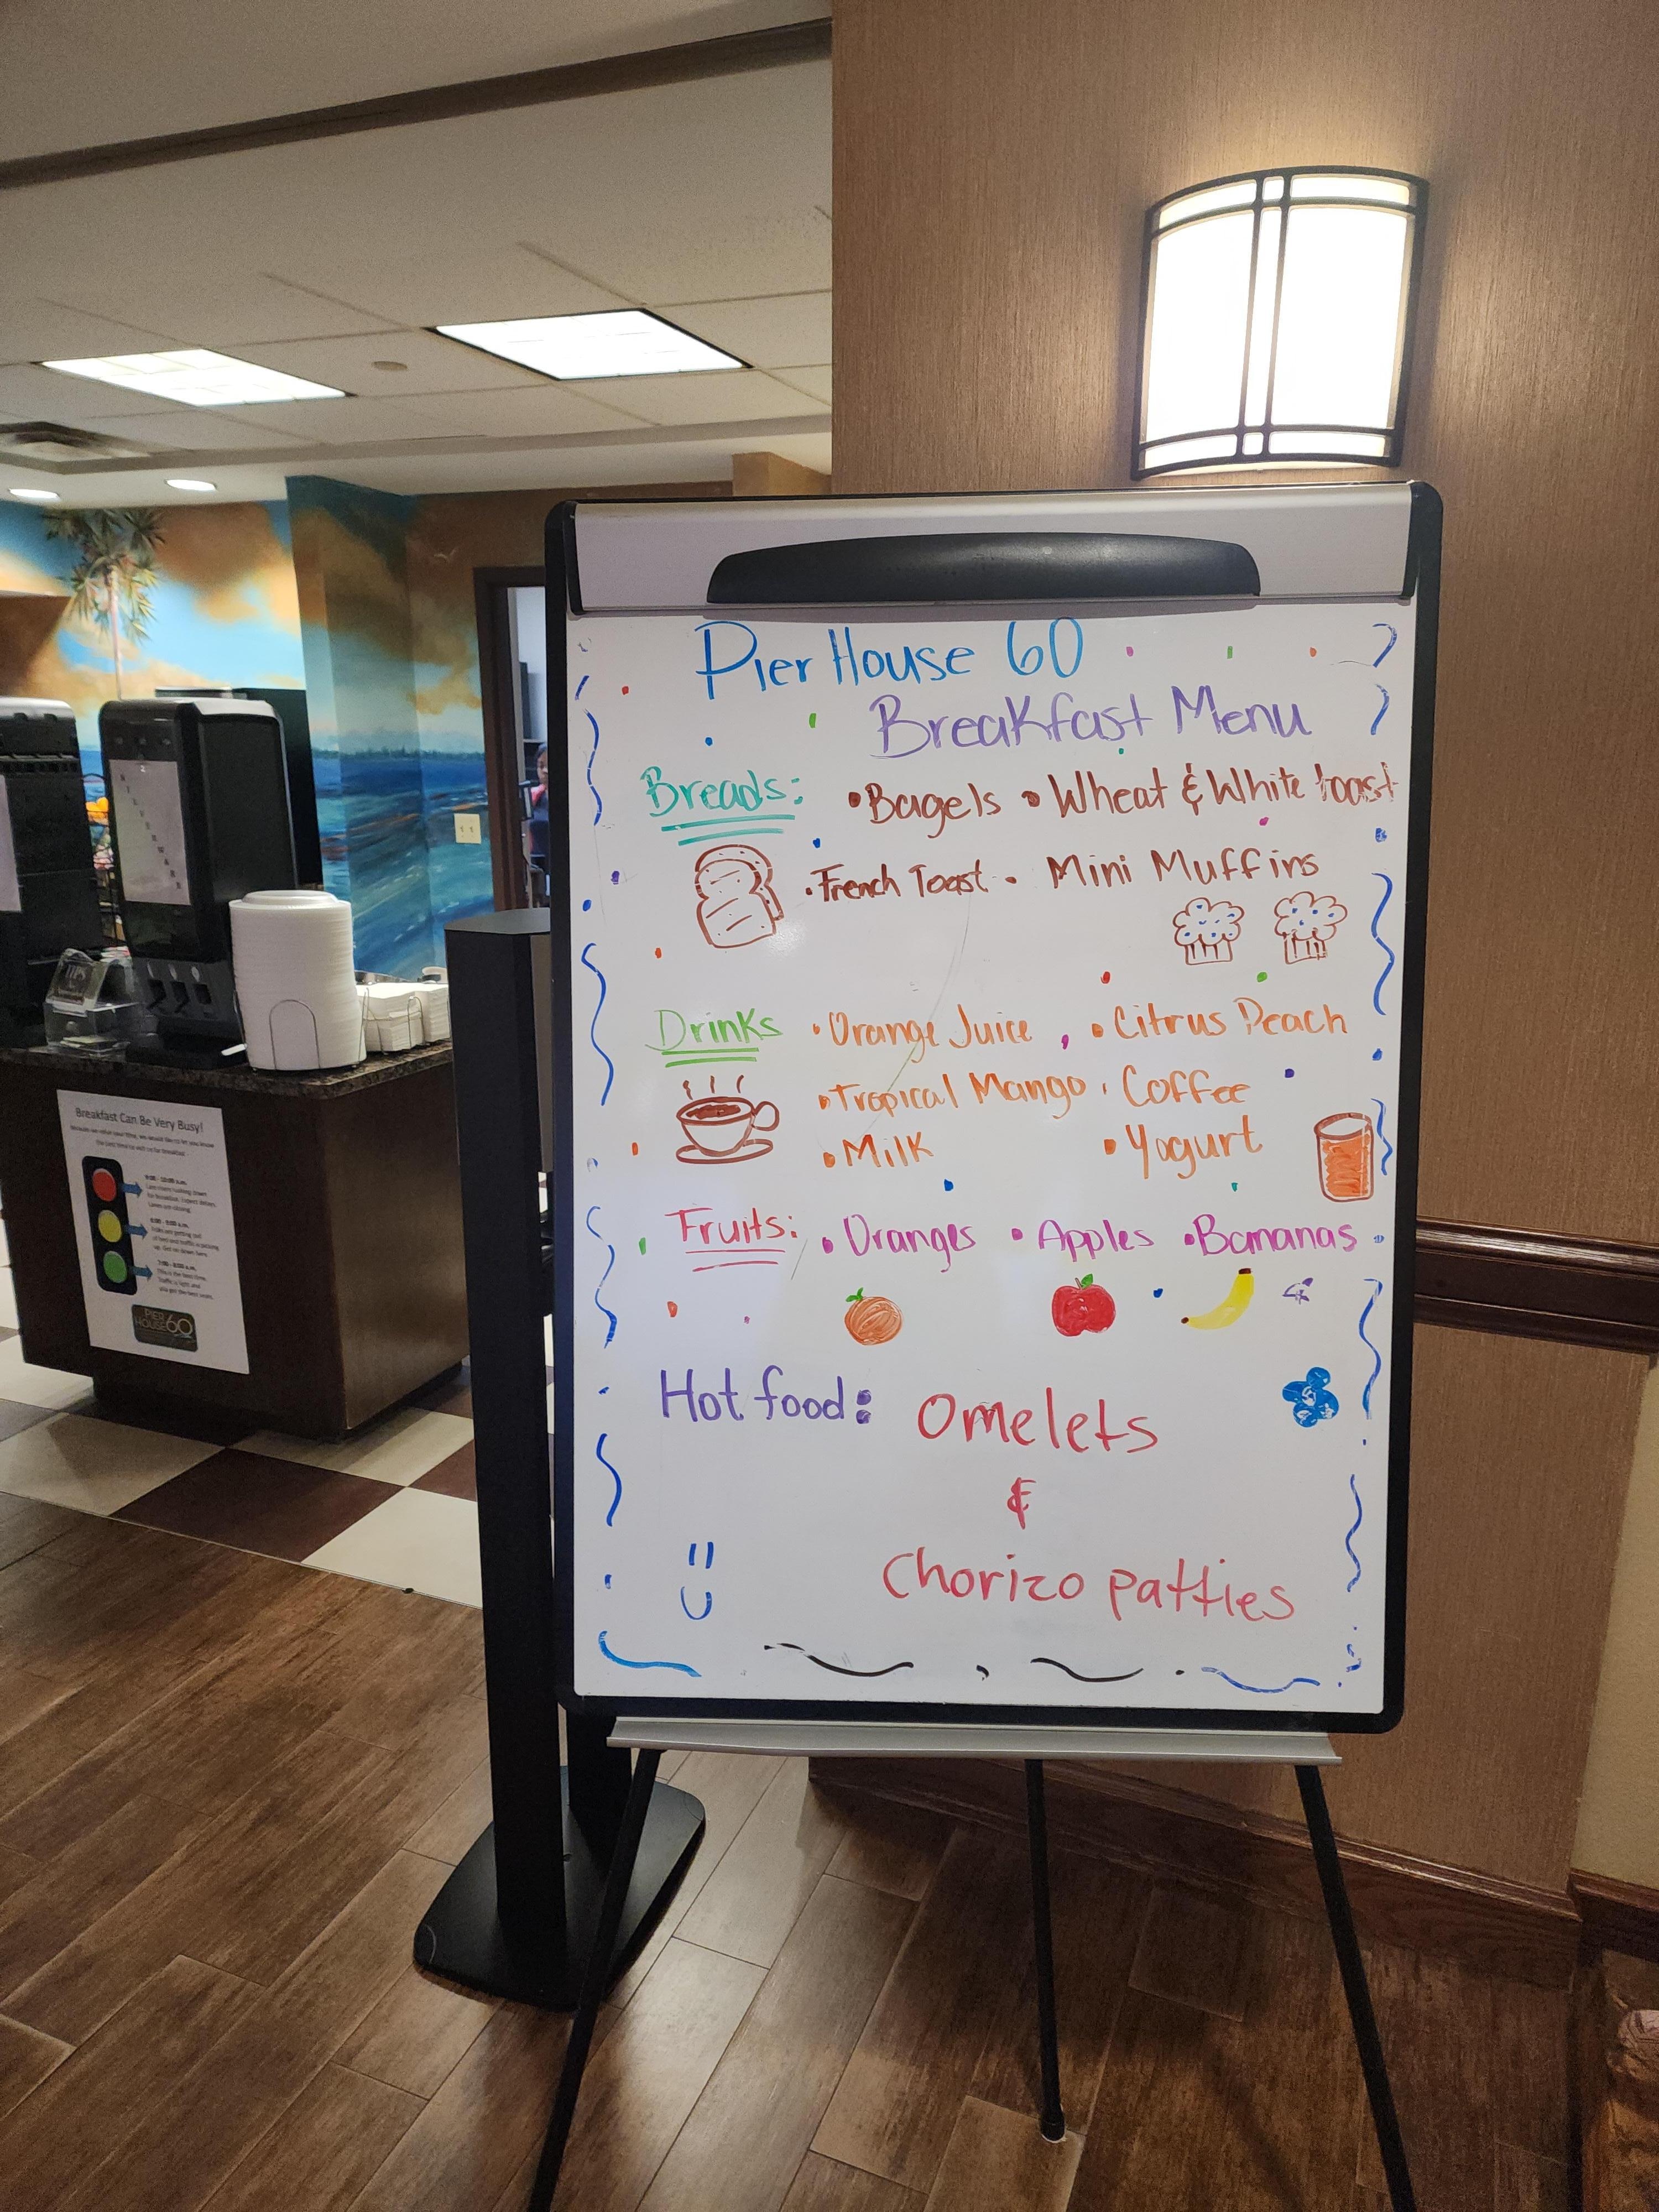 Pier House 60
Breakfast Menu
Breads: • Bagels • Wheat & White toast
• French Toast • Mini Muffins
Drinks • Orange Juice • Citrus Peach
• Tropical Mango • Coffee
• Milk • Yogurt
Fruits: • Oranges • Apples • Bananas
Hot food: Omelets
&
Chorizo patties
SILVERWARE
TIPS
Breakfast Can Be Very Busy!
PIER
HOUSE 60